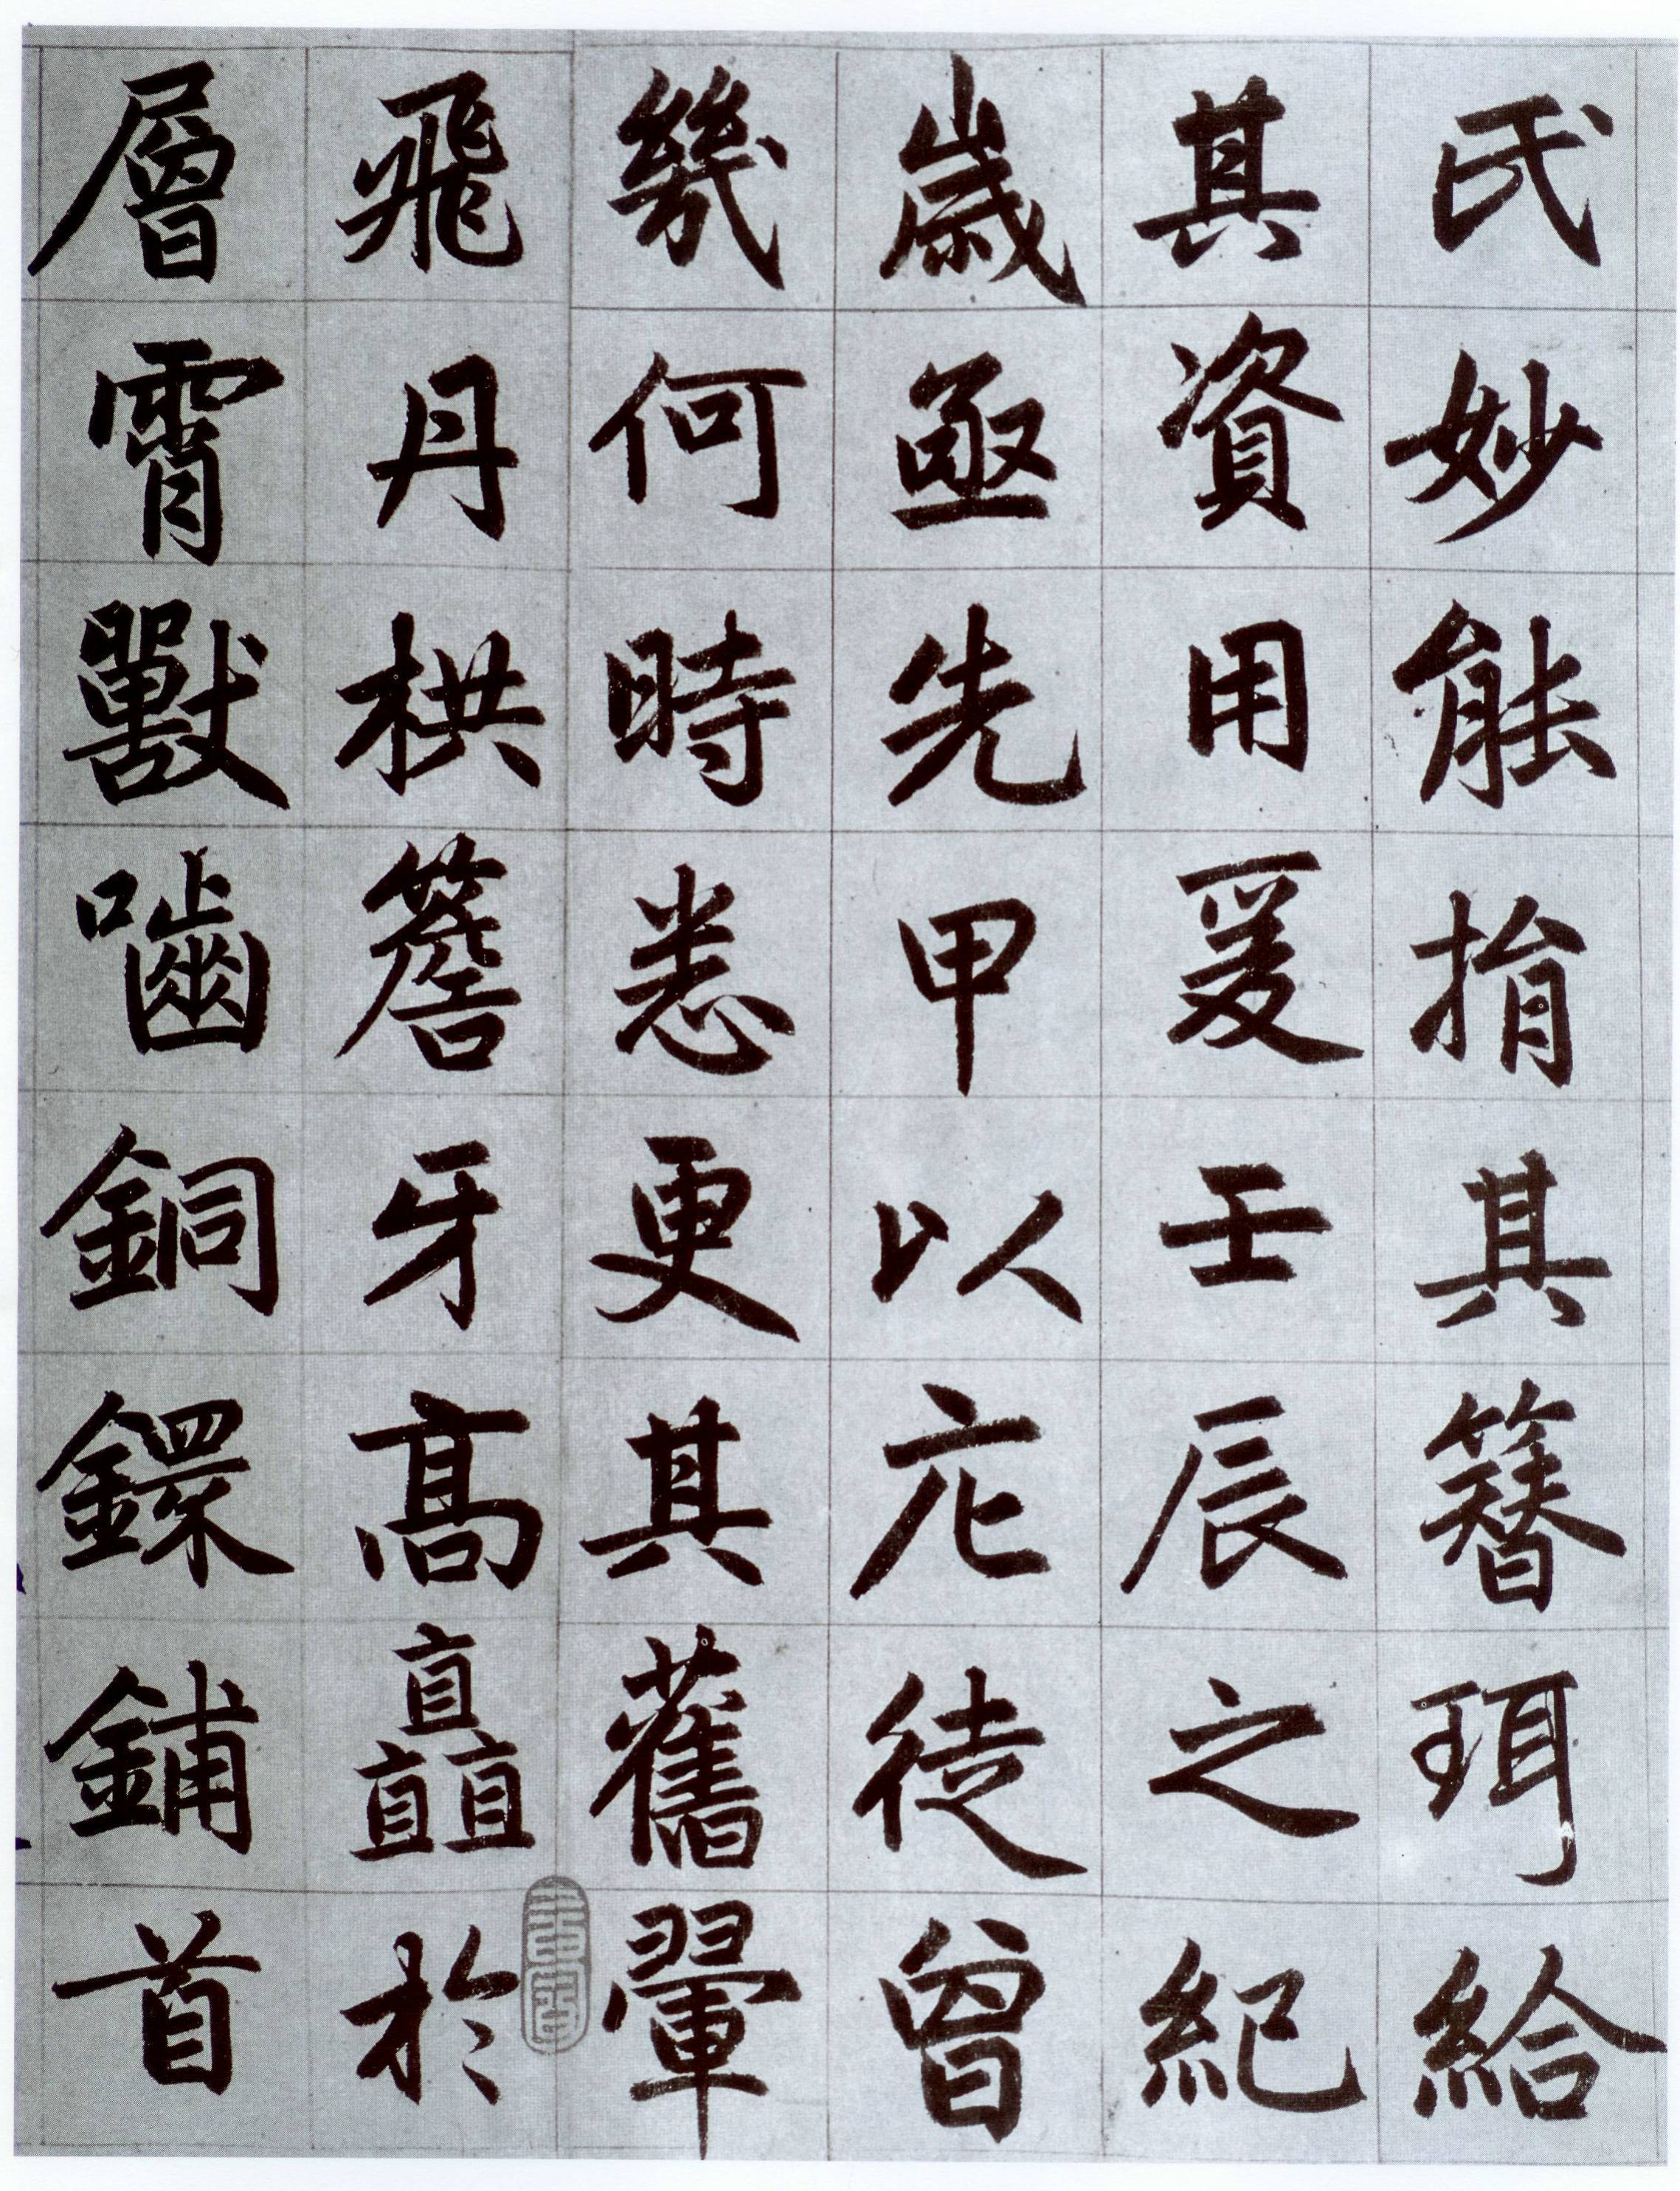 氏妙能捐其簪珥給
其資用爰壬辰之紀
歲亟先甲以庀徒曾
幾何時悉更其舊翬
飛丹栱簷牙高矗於
層霄獸嚙銅鐶鋪首